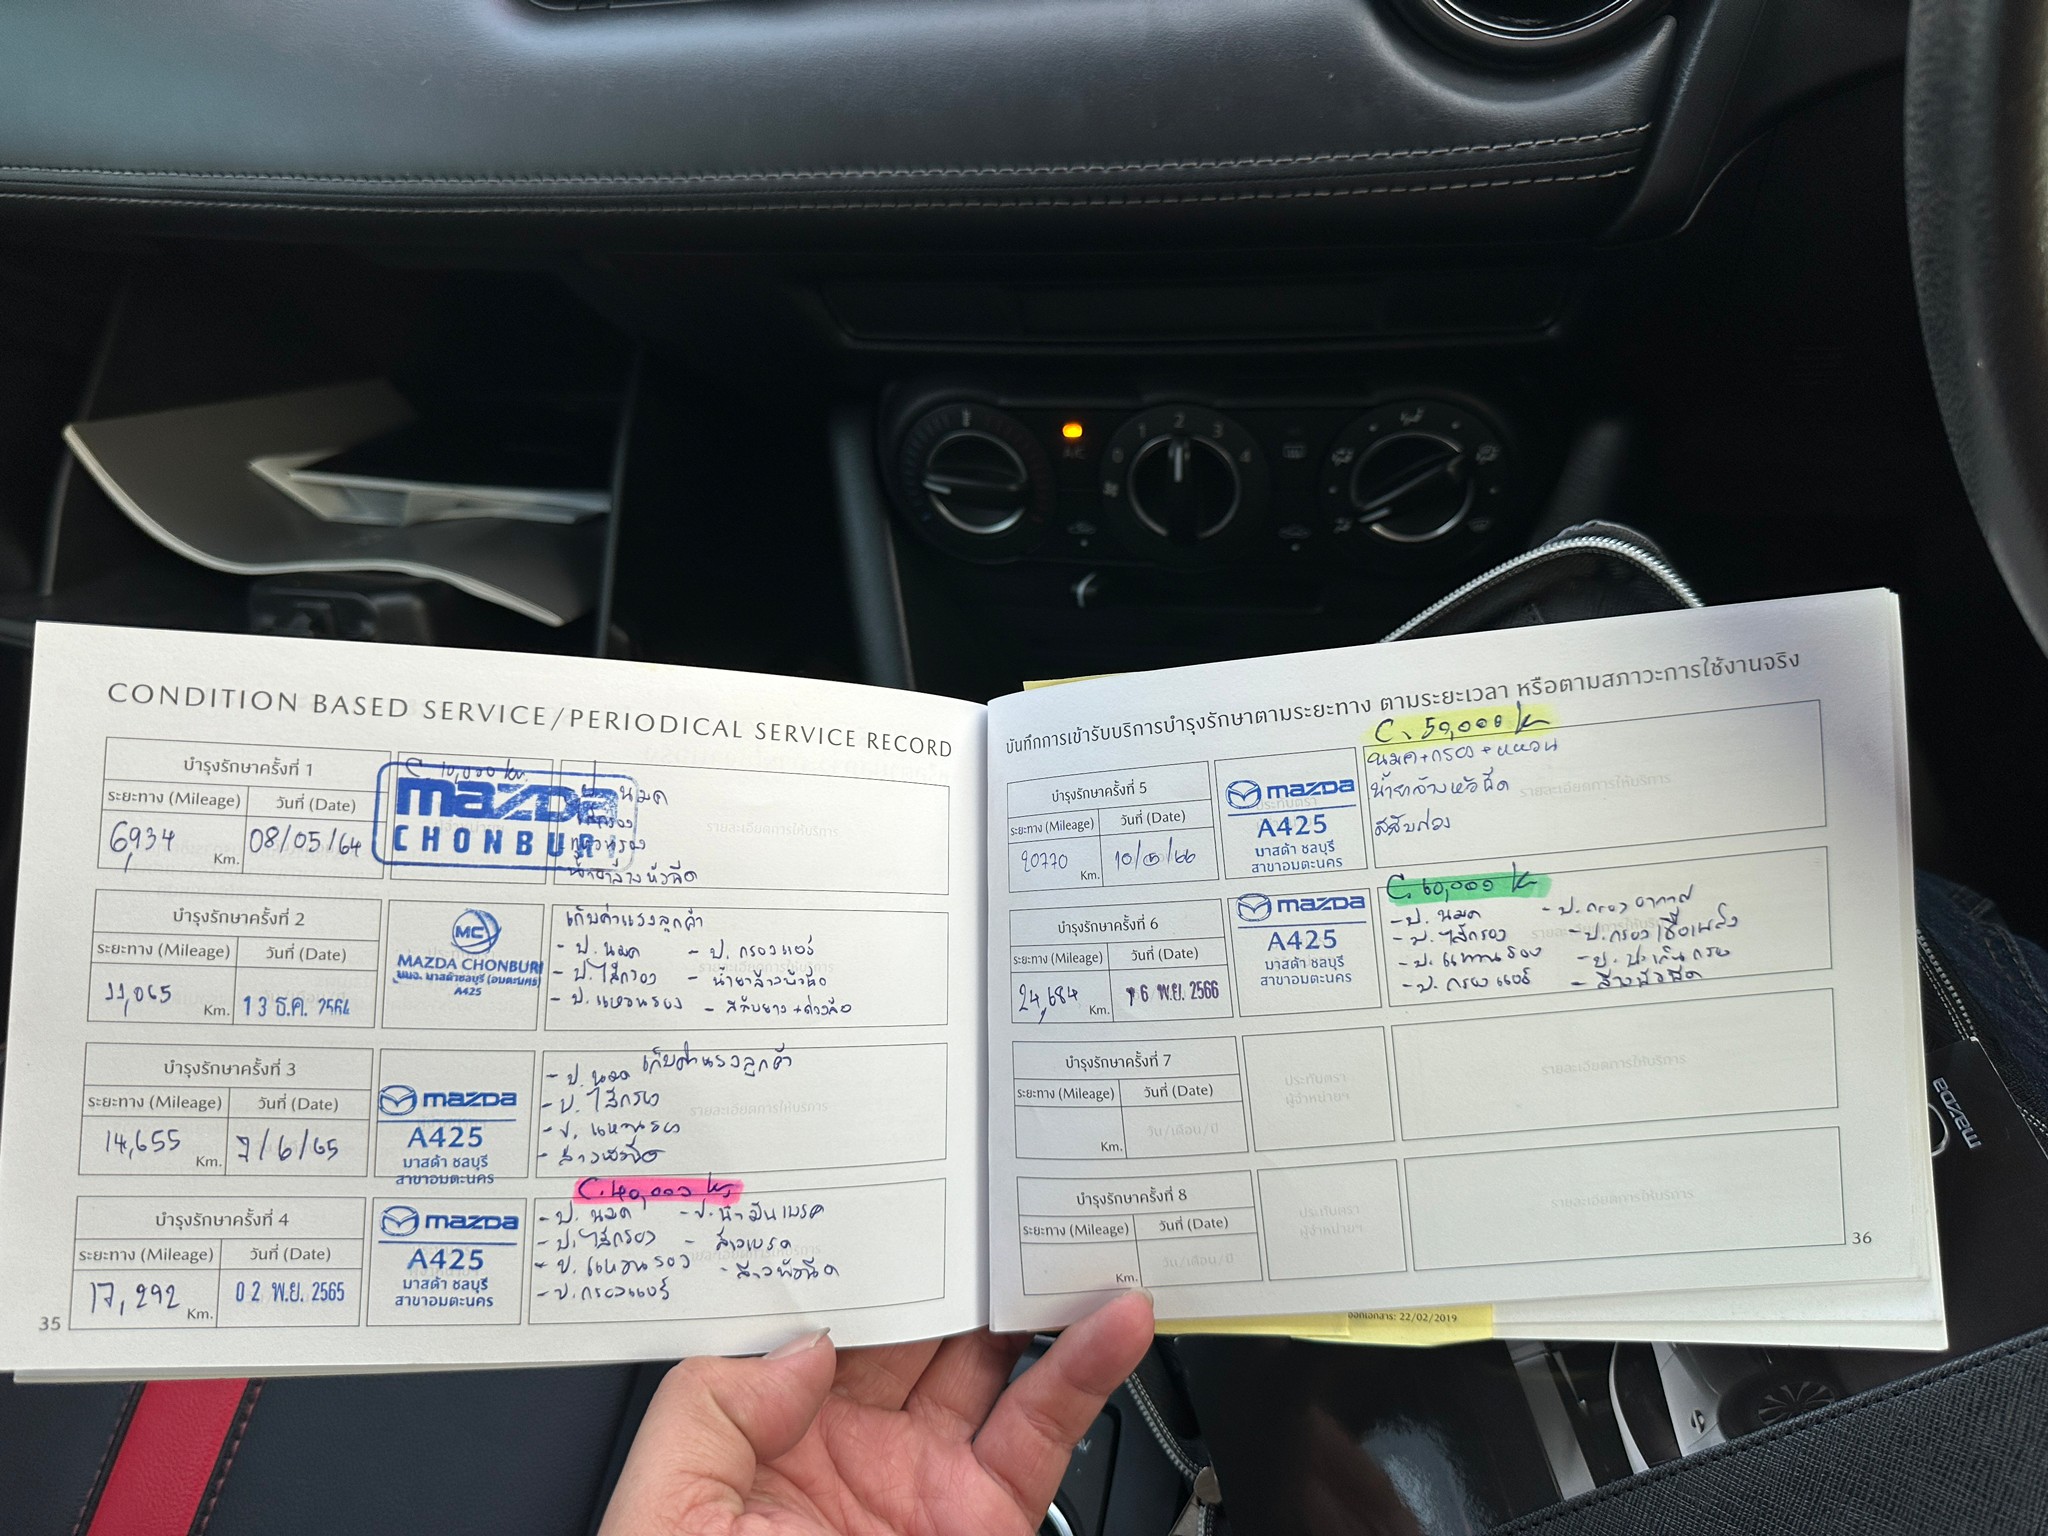 CONDITION BASED SERVICE/PERIODICAL SERVICE RECORD
บำรุงรักษาครั้งที่ 1
ระยะทาง (Mileage) วันที่ (Date)
6,934 Km. 08/05/64
C 10,000 km.
mazda
CHONBURI
นมค
รายละเอียดการให้บริการ
บำรุงรักษาครั้งที่ 2
ระยะทาง (Mileage) วันที่ (Date)
11,065 Km. 13 ธ.ค. 2564
MC
MAZDA CHONBURI
บมจ. มาสด้าชลบุรี (อมตะนคร)
A425
เก็บค่าแรงลูกค้า
- ป. นมค - ป. กรองแอร์
- ป. ไส้กรอง
- ป. แหวนรอง
บำรุงรักษาครั้งที่ 3
ระยะทาง (Mileage) วันที่ (Date)
14,655 Km. 7/6/65
mazda
A425
มาสด้า ชลบุรี
สาขาอมตะนคร
เก็บค่าแรงลูกค้า
- ป. นมค
- ป. ไส้กรอง
- ป. แหวนรอง
- ล้างหัวฉีด
บำรุงรักษาครั้งที่ 4
ระยะทาง (Mileage) วันที่ (Date)
17,292 Km. 02 พ.ย. 2565
mazda
A425
มาสด้า ชลบุรี
สาขาอมตะนคร
C. 40,000 km
- ป. นมค - ป. น้ำมันเบรค
- ป. ไส้กรอง - ล้างเบรค
- ป. แหวนรอง - ล้างหัวฉีด
- ป. กรองแอร์
35
บันทึกการเข้ารับบริการบำรุงรักษาตามระยะทาง ตามระยะเวลา หรือตามสภาวะการใช้งานจริง
บำรุงรักษาครั้งที่ 5
ระยะทาง (Mileage) วันที่ (Date)
20770 Km. 10/5/66
mazda
A425
มาสด้า ชลบุรี
สาขาอมตะนคร
C. 50,000 k
นมค+กรอง+แหวน
น้ำยาล้างหัวฉีด
รายละเอียดการให้บริการ
บำรุงรักษาครั้งที่ 6
ระยะทาง (Mileage) วันที่ (Date)
24,684 Km. 6 พ.ย. 2566
mazda
A425
มาสด้า ชลบุรี
สาขาอมตะนคร
C. 60,000 k
- ป. นมค - ป. กรองอากาศ
- ป. ไส้กรอง - ป. กรองเชื้อเพลิง
- ป. แหวนรอง
- ป. กรองแอร์ - ล้างหัวฉีด
บำรุงรักษาครั้งที่ 7
ระยะทาง (Mileage) วันที่ (Date)
Km. วัน/เดือน/ปี
ประทับตรา
ผู้จำหน่ายฯ
รายละเอียดการให้บริการ
บำรุงรักษาครั้งที่ 8
ระยะทาง (Mileage) วันที่ (Date)
Km. วัน/เดือน/ปี
ประทับตรา
ผู้จำหน่ายฯ
รายละเอียดการให้บริการ
36
ออกเอกสาร: 22/02/2019
mazda
A/C
0 1 2 3 4